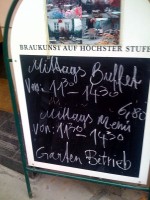 BRAUKUNST AUF HÖCHSTER STUFE
Mittags Buffet
von: 11³⁰ - 14³⁰
6,80
Mittags Menü
von: 11³⁰ - 14³⁰
Garten Betrieb